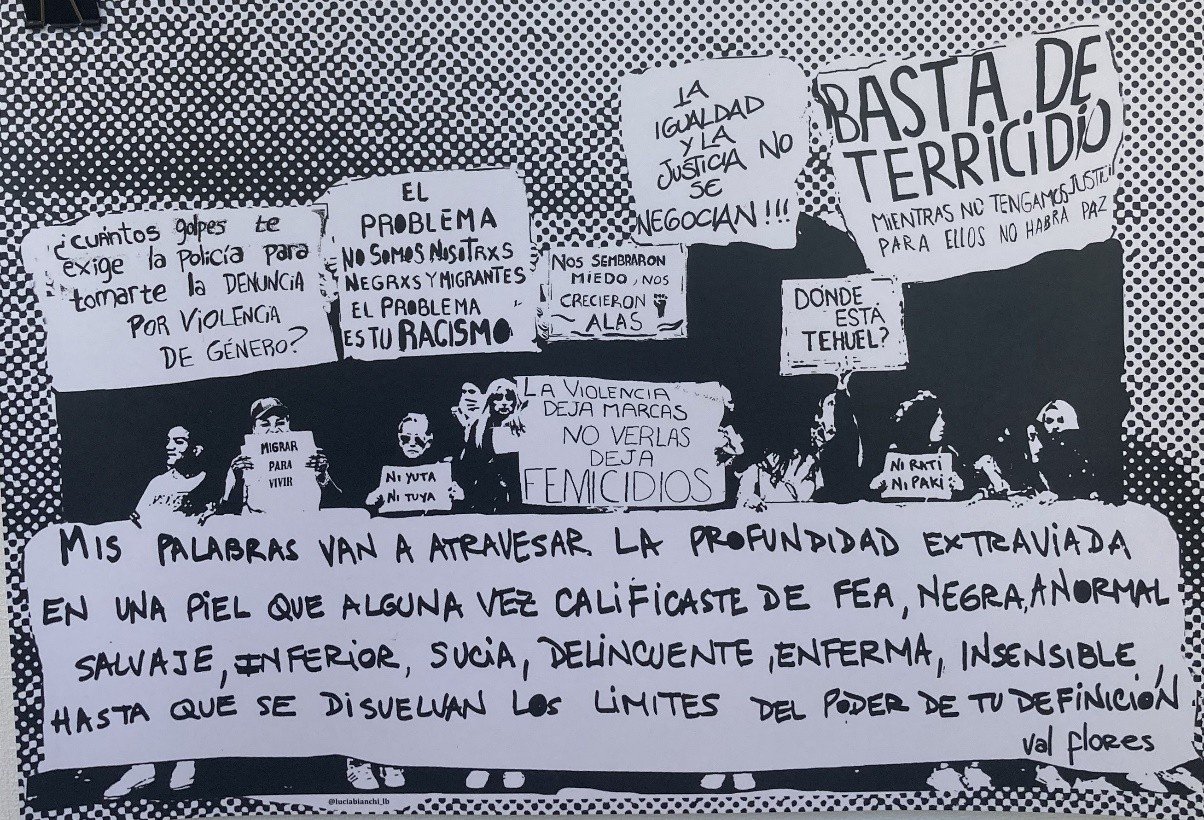 ¿cuántos golpes te
exige la Policía para
tomarte la DENUNCIA
POR VIOLENCIA
DE GÉNERO?
EL
PROBLEMA
NO SOMOS NOSOTRXS
NEGRXS Y MIGRANTES
EL PROBLEMA
ES TU RACISMO
NOS SEMBRARON
MIEDO, NOS
CRECIERON
ALAS
LA
IGUALDAD
Y LA
JUSTICIA NO
SE
NEGOCIAN!!!
BASTA DE
TERRICIDIO
MIENTRAS NO TENGAMOS JUSTICI
PARA ELLOS NO HABRÁ PAZ
DÓNDE
ESTÁ
TEHUEL?
MIGRAR
PARA
VIVIR
NI YUTA
NI TUYA
LA VIOLENCIA
DEJA MARCAS
NO VERLAS
DEJA
FEMICIDIOS
NI RATI
NI PAKI
MIS PALABRAS VAN A ATRAVESAR LA PROFUNDIDAD EXTRAVIADA
EN UNA PIEL QUE ALGUNA VEZ CALIFICASTE DE FEA, NEGRA, ANORMAL
SALVAJE, INFERIOR, SUCIA, DELINCUENTE, ENFERMA, INSENSIBLE,
HASTA QUE SE DISUELVAN LOS LÍMITES DEL PODER DE TU DEFINICIÓN
val flores
@luciabianchi_lb